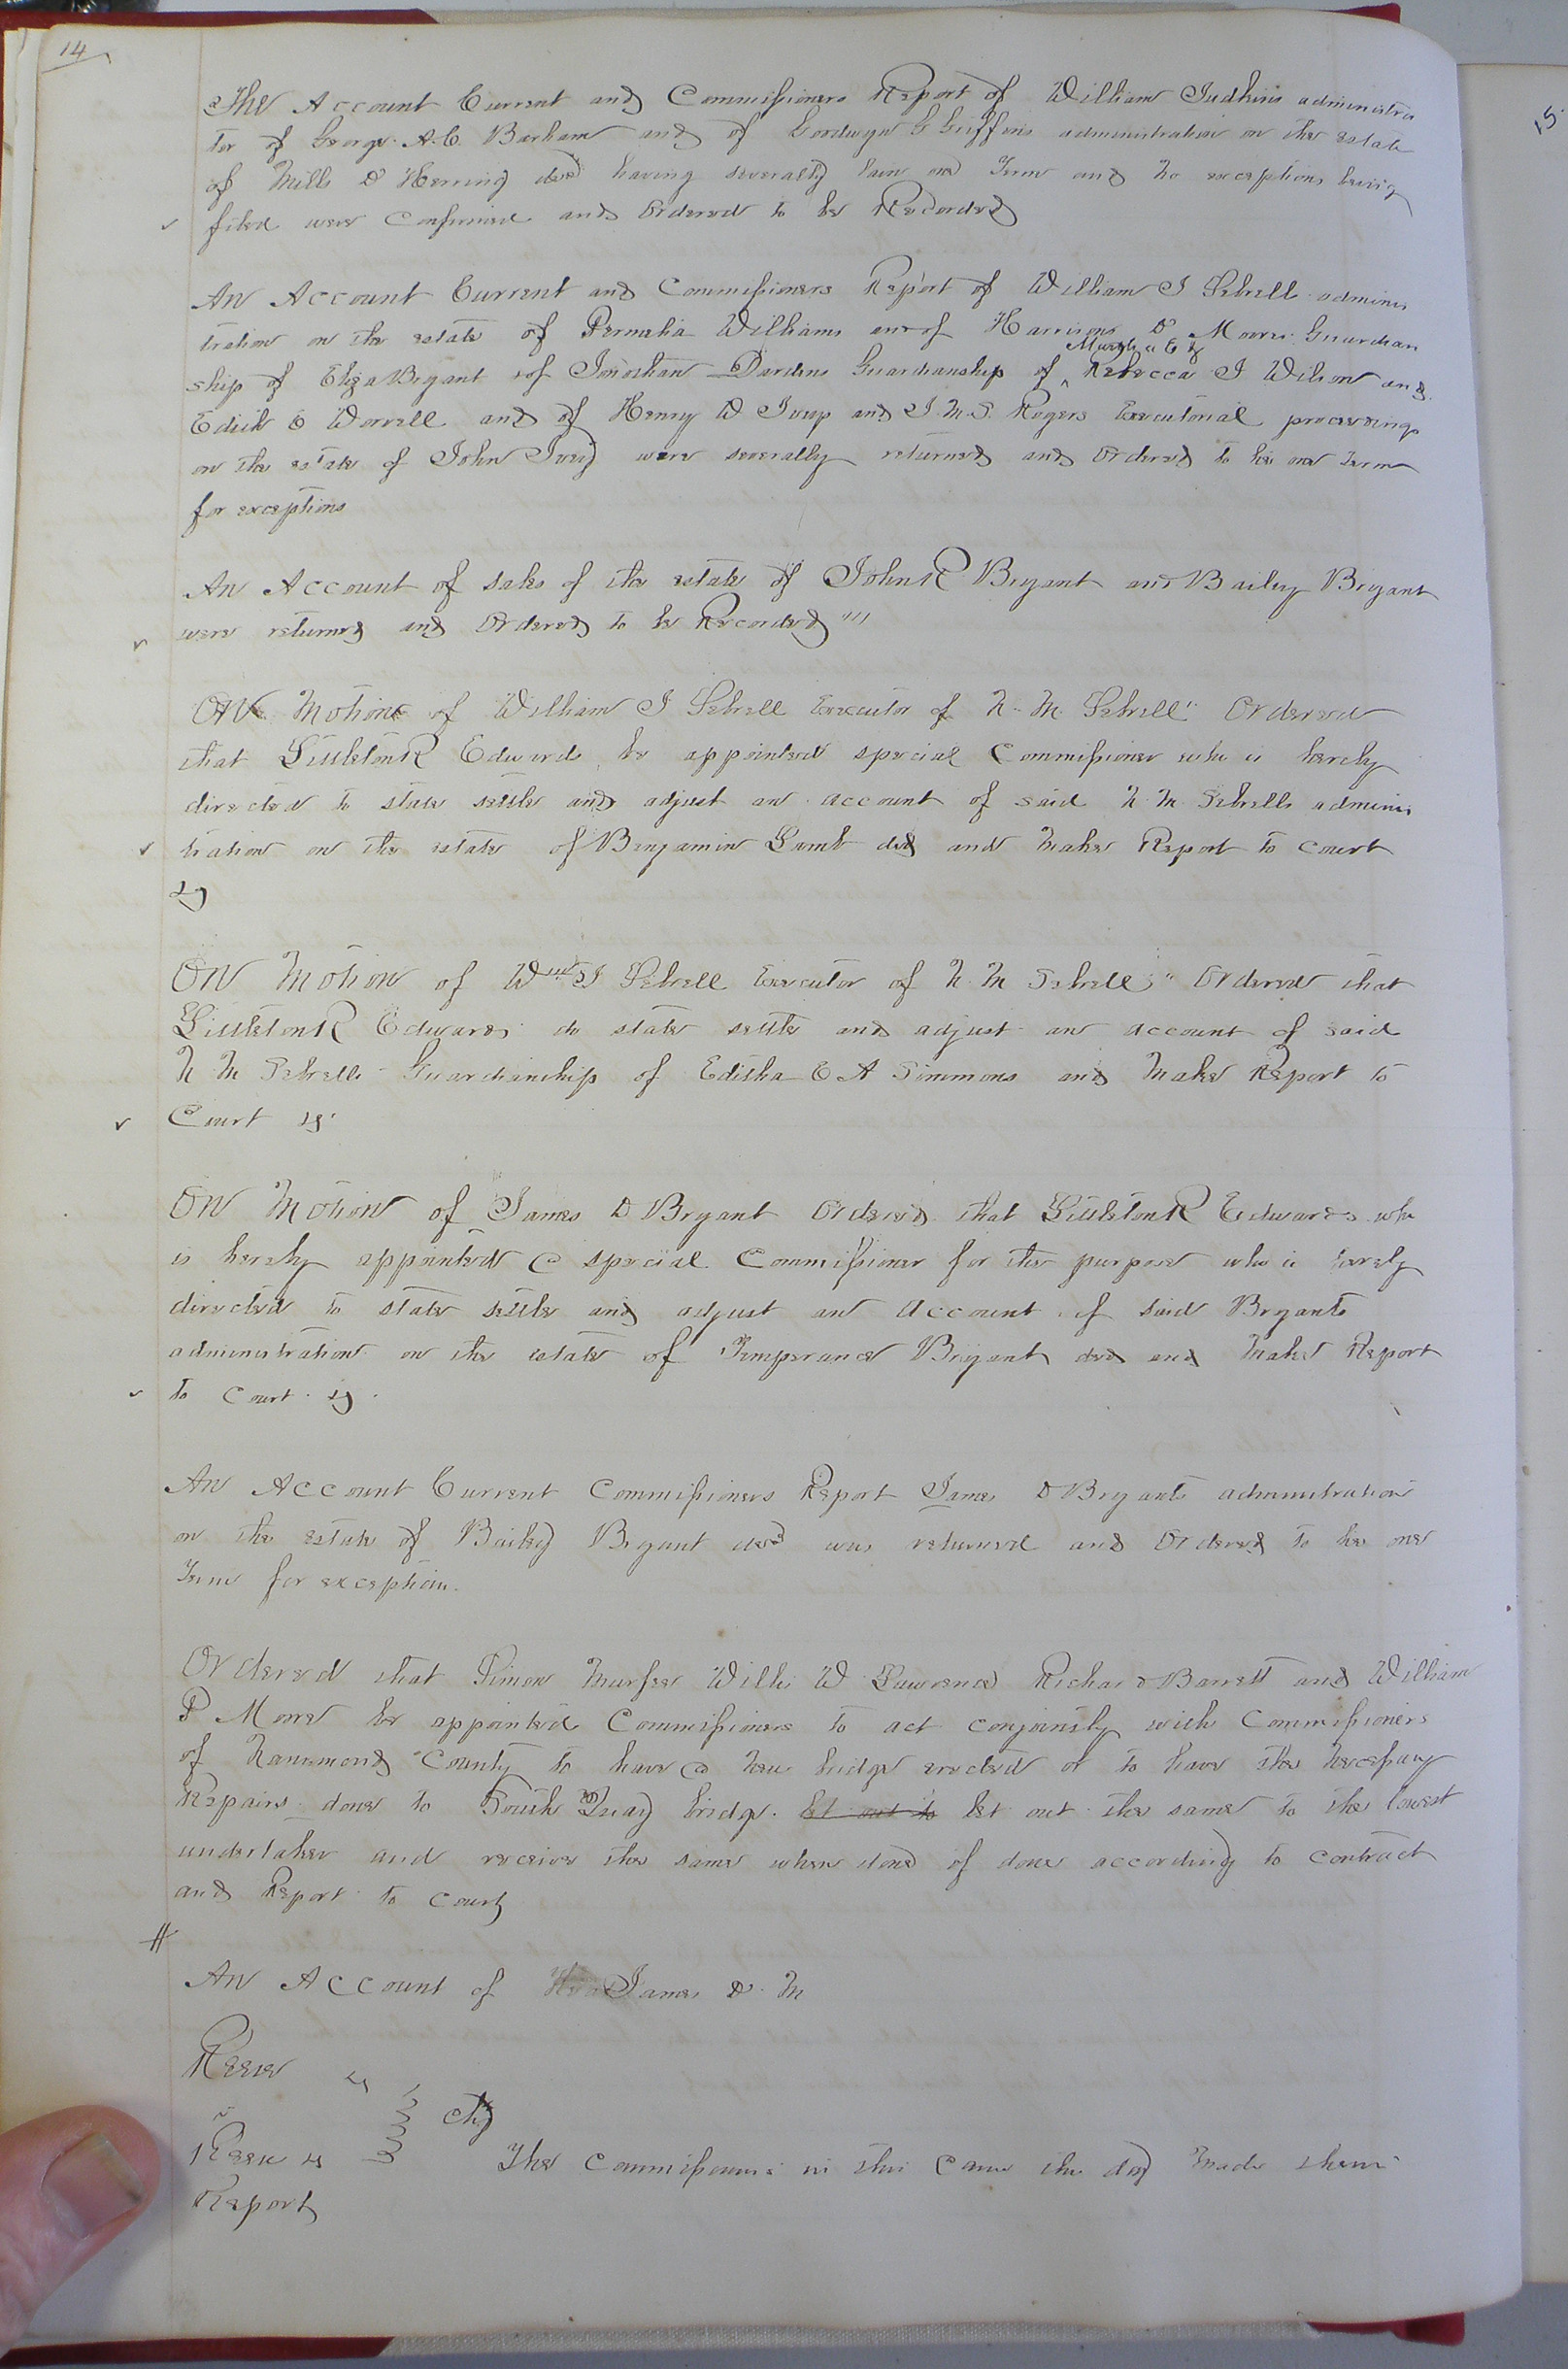 14
15.
The Account Current and Commissioners Report of William Judkins administra
tor of George A. C. Barham and of Goodwyn G Griffins administration on the estate
of Mills D Herring decd having severally lain one Term and no exceptions being
filed were Confirmed and Ordered to be Recorded
An Account Current and Commissioners Report of William J Sebrell adminis
tration on the estate of Permelia Williams and of Harrison D Moores Guardian
Martha E &
ship of Eliza Bryant & of Jonathan Dardens Guardianship of Rebecca J Wilson and
Edith E Worrell and of Henry W Ivey and J. M. S. Rogers Executorial proceedings
on the estate of John Ivey were severally returned and Ordered to lie one term
for exceptions
An Account of sales of the estate of John R Bryant and Bailey Bryant
were returned and Ordered to be Recorded
On Motion of William J Sebrell Executor of N. M. Sebrell Ordered
that Littleton R Edwards be appointed special Commissioner who is hereby
directed to state settle and adjust an account of said N. M. Sebrells adminis
tration on the estate of Benjamin Lamb decd and make Report to Court
&c
On Motion of Wm J Sebrell Executor of N. M Sebrell Ordered that
Littleton R Edwards do state settle and adjust an account of said
N M Sebrells Guardianship of Editha E A Simmons and make Report to
Court &c
On Motion of James D Bryant Ordered that Littleton R Edwards who
is hereby appointed a special Commissioner for the purpose who is hereby
directed to state settle and adjust an Account of said Bryants
administration on the estate of Temperance Bryant decd and make Report
to Court &c
An Account Current Commissioners Report James D Bryants administration
on the estate of Bailey Bryant decd was returned and Ordered to lie one
Term for exceptions.
Ordered that Simon Murfee Willis W Lawrence Richard Barrett and William
P Moore be appointed Commissioners to act conjointly with Commissioners
of Nansemond County to have a new bridge erected or to have the necessary
Repairs done to South Quay bridge. let out to let out the same to the lowest
undertaker and receive the same when done if done according to contract
and Report to Court
An Account of James D. M
Reese &
Reese &
The Commissioners in this Cause this day made their
Report